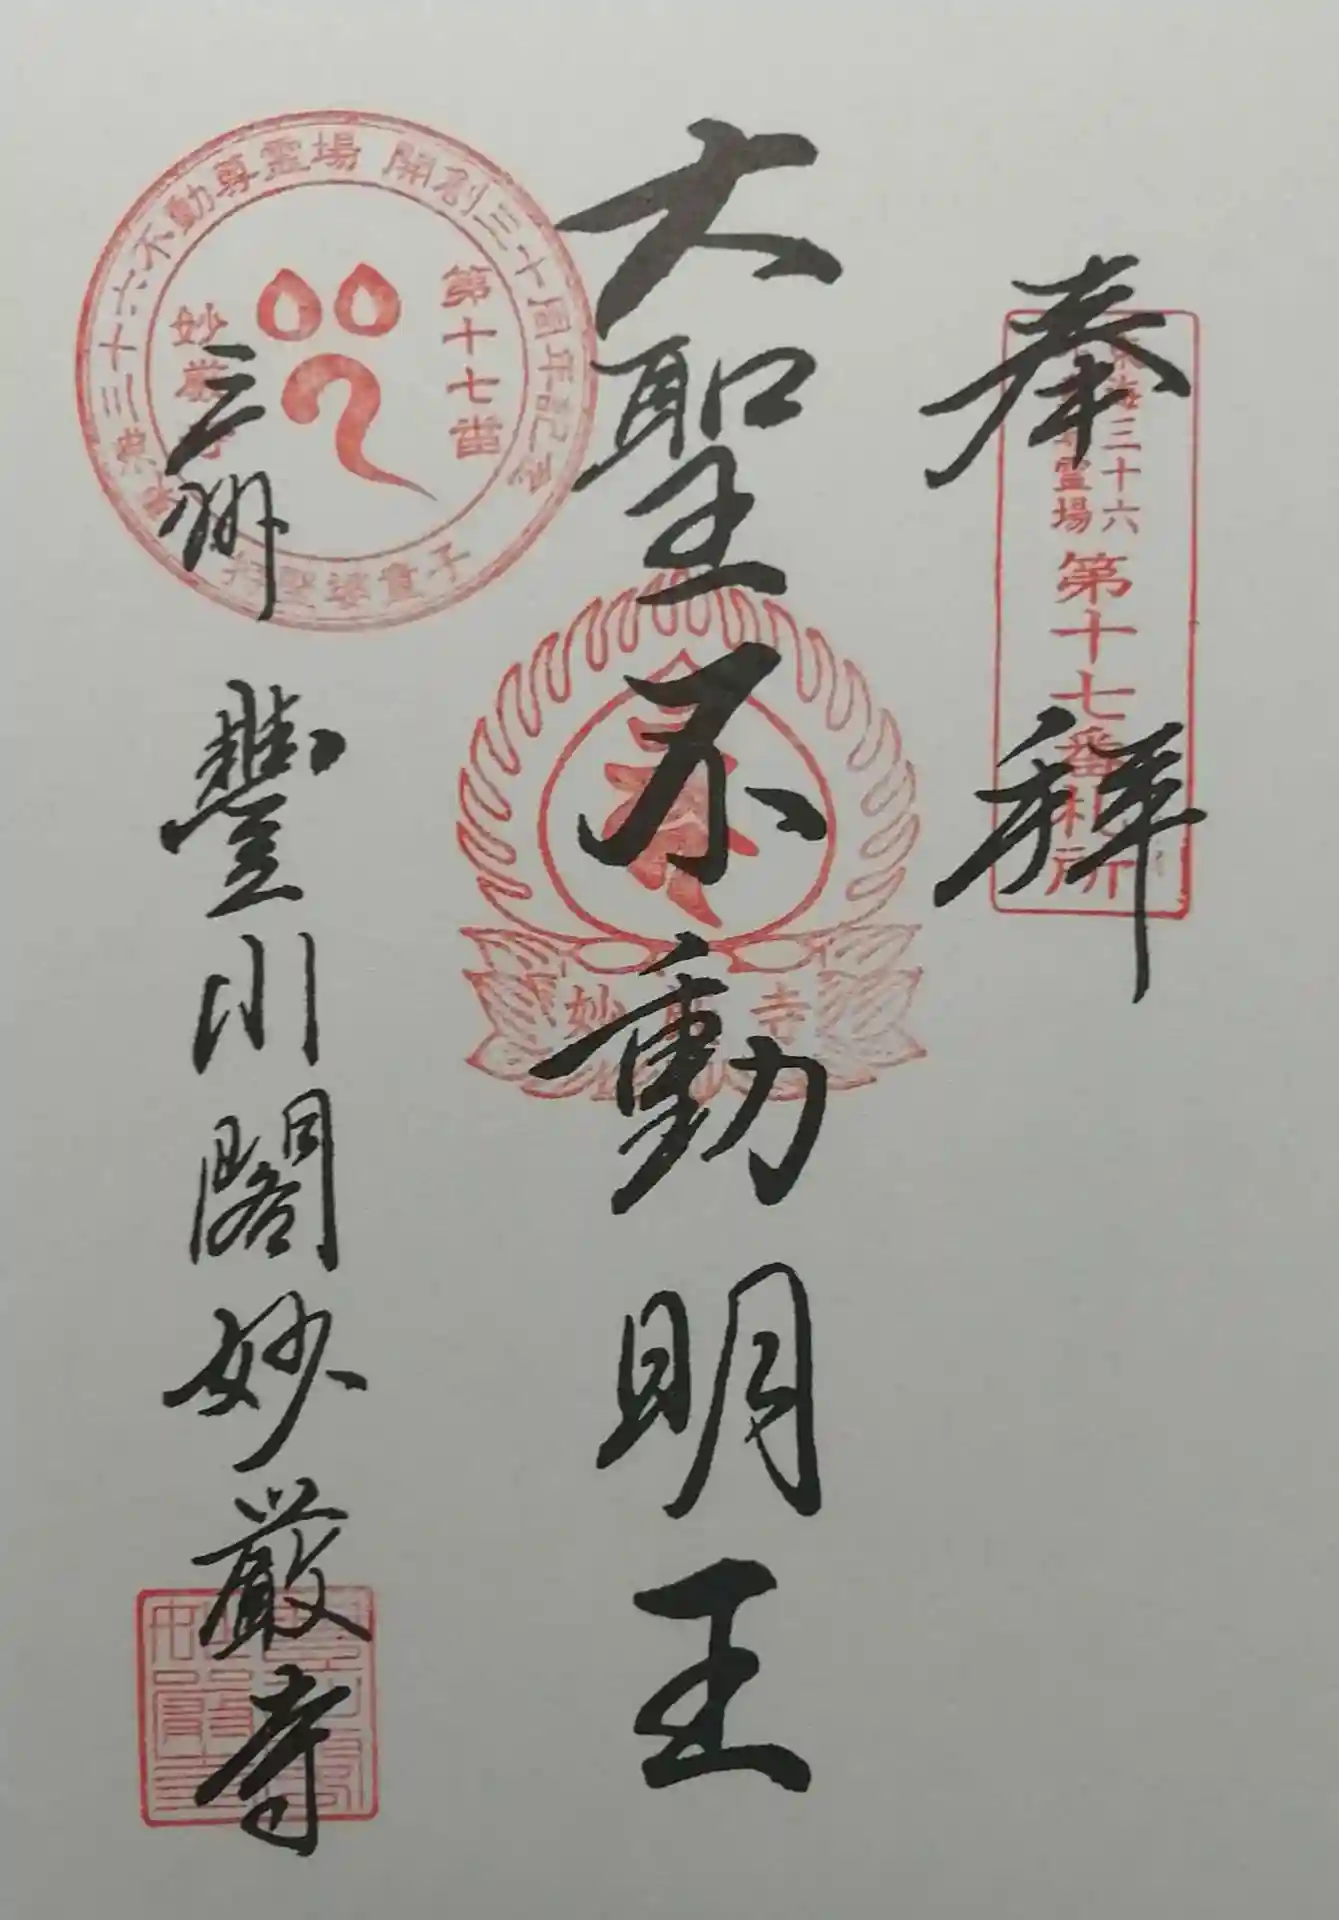 奉拝
三十六
霊場
第十七番札所
大聖不動明王
妙
寺
三十六不動尊霊場 開創三十周年記念
第十七番
妙厳寺
三州
豊川閣妙厳寺